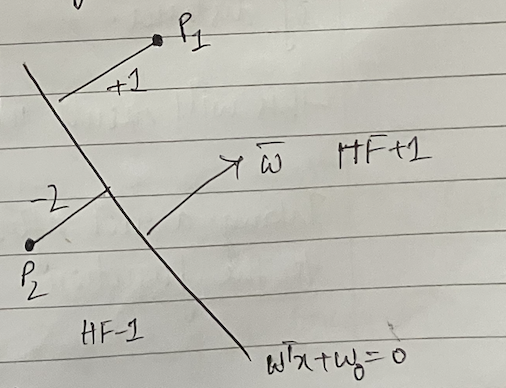 P1
+1
w̄ HF+1
-2
P2
HF-1
w̄ᵀx+w₀=0